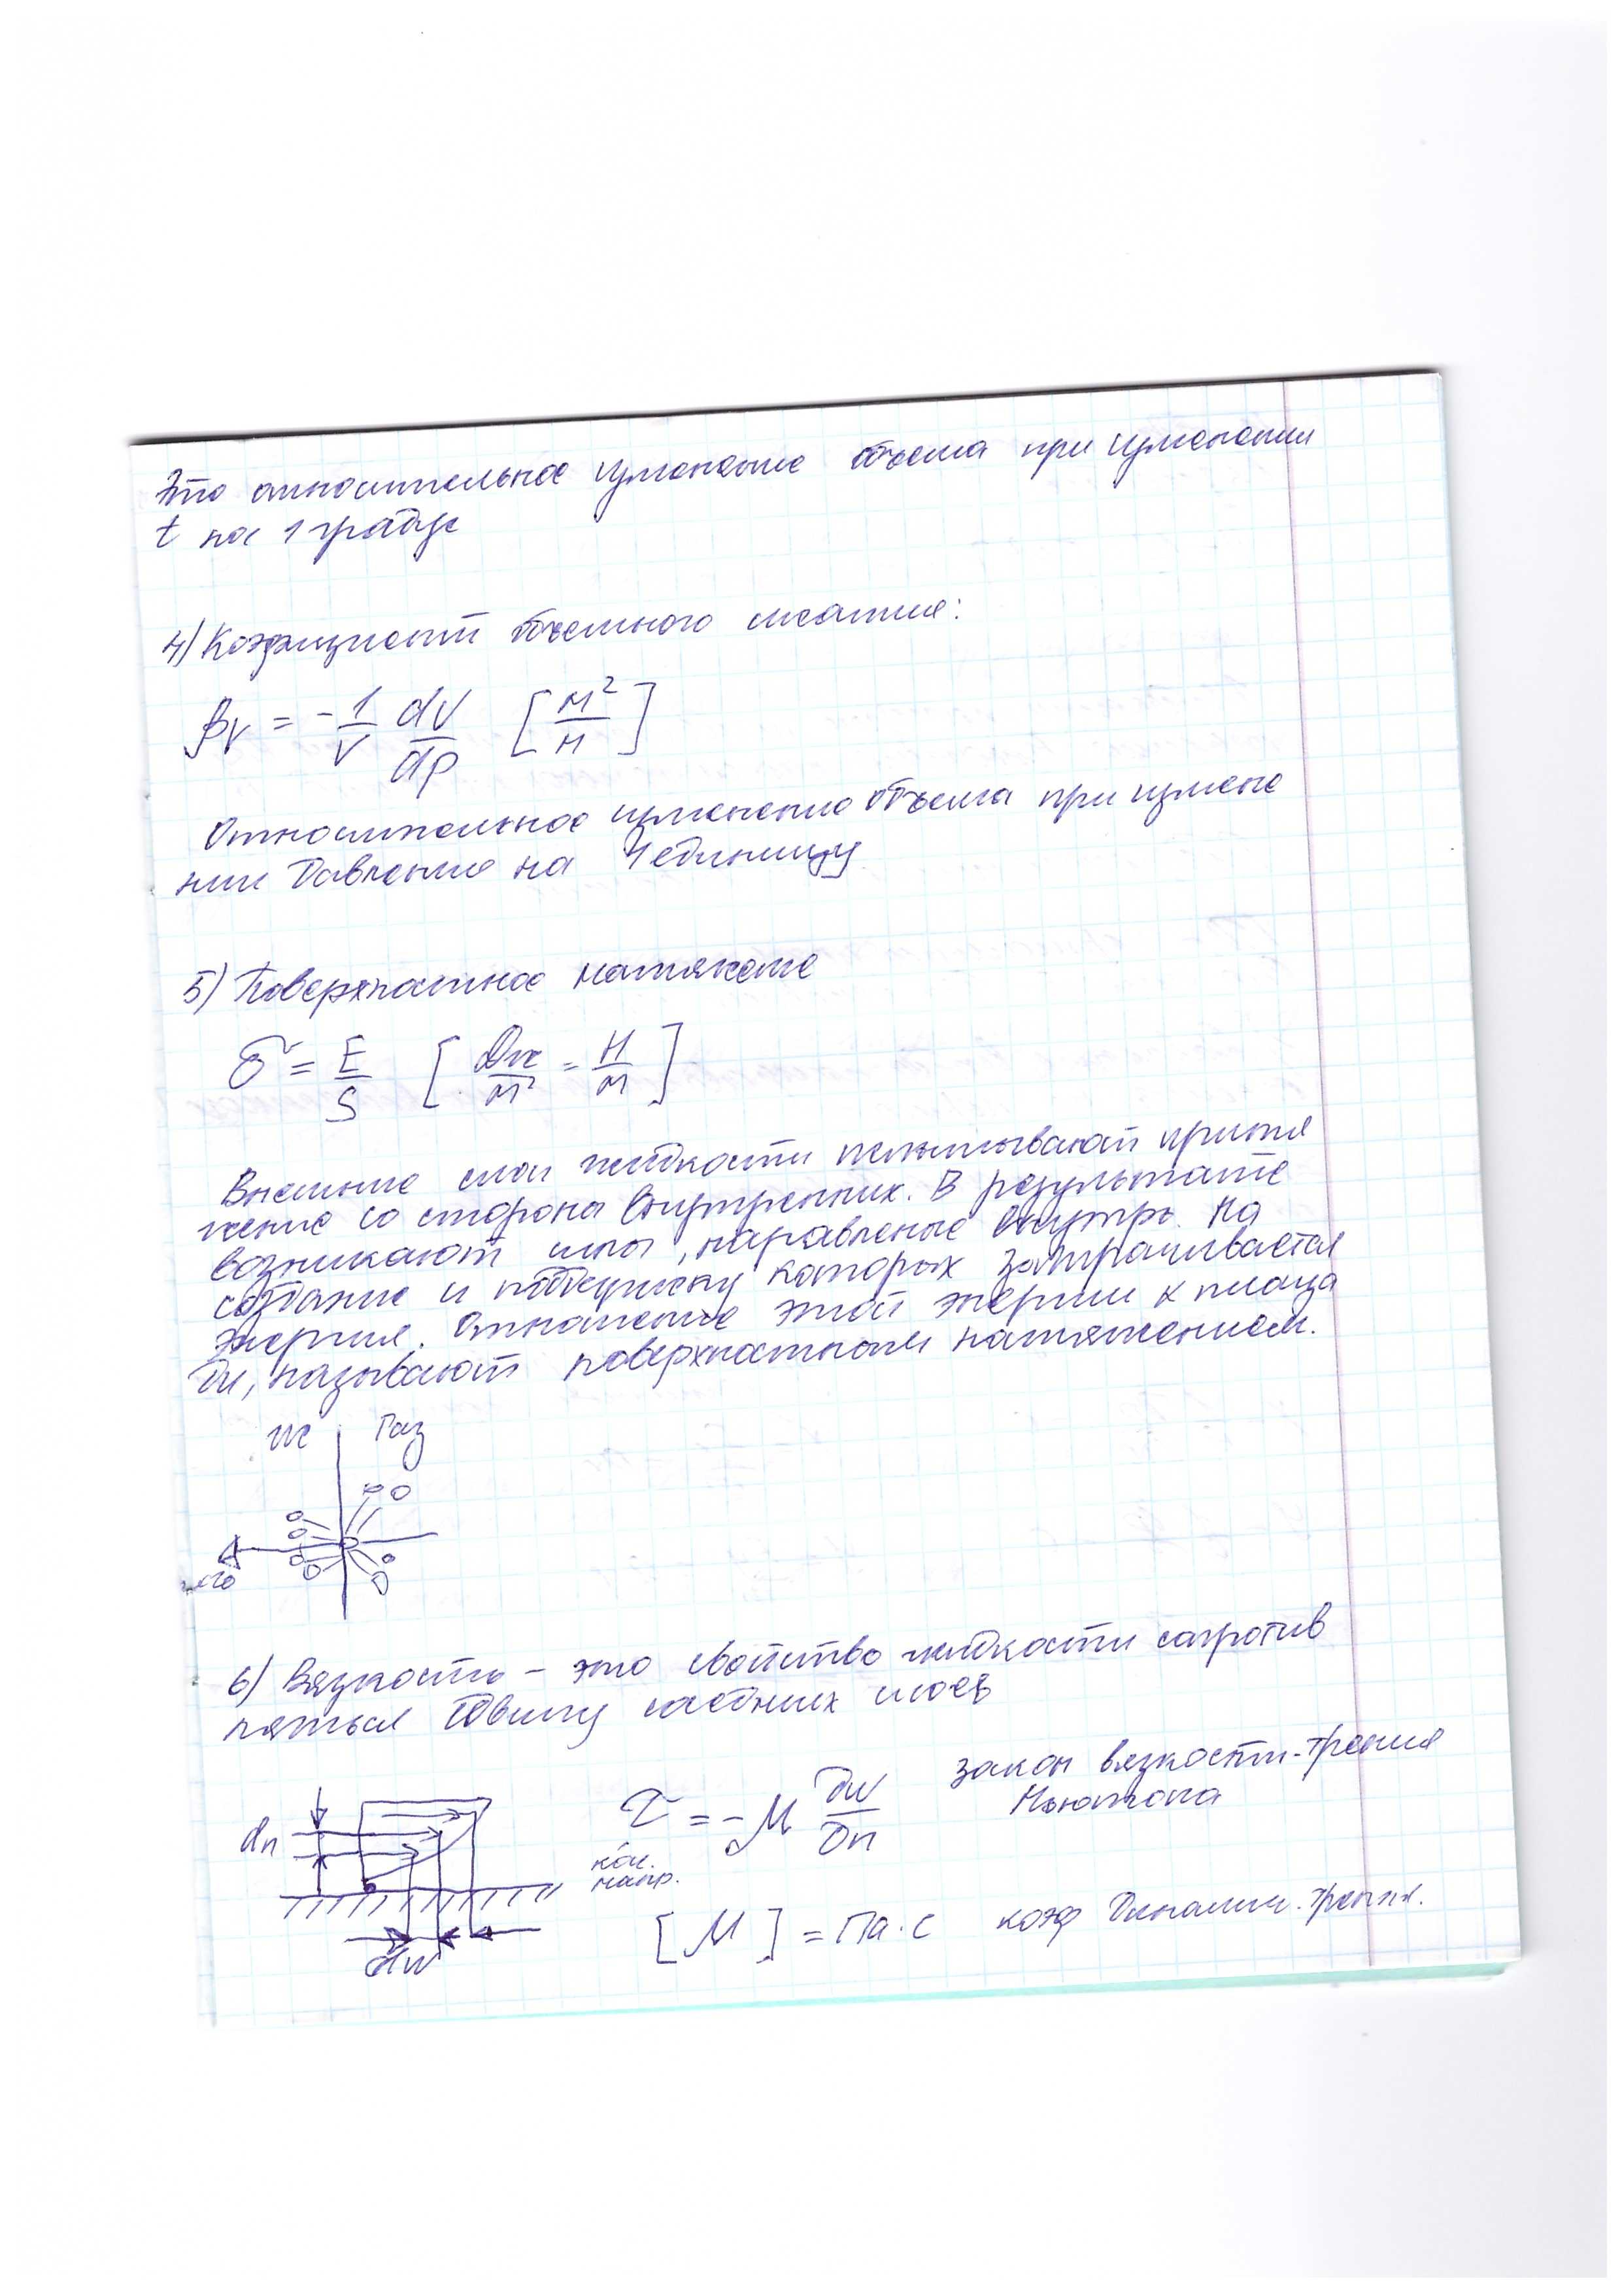 Это относительное изменение объема при изменении
t на 1 градус
4) Коэфициент объемного сжатия:
βV = - 1/V dV/dp [м²/н]
Относительное изменение объема при измене
нии давления на 1 единицу
5) Поверхностное натяжение
σ = E/S [Дж/м² = Н/м]
Внешние слои жидкости испытывают притя
жение со стороны внутренних. В результате
возникают силы, направленые внутрь. На
создание и поддержку которых затрачивается
энергия. Отношение этой энергии к площа
ди, называют поверхностным натяжением.
ж Газ
6) Вязкость - это свойство жидкости сапротив
ляться сдвигу соседних слоев
dn
τ = - μ dw/dn закон вязкости-трения
Ньютона
кас.
напр.
dw
[μ] = Па·с коэф динамич. трения.